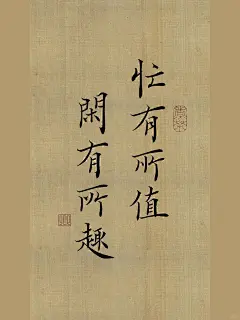 忙有所值
閑有所趣